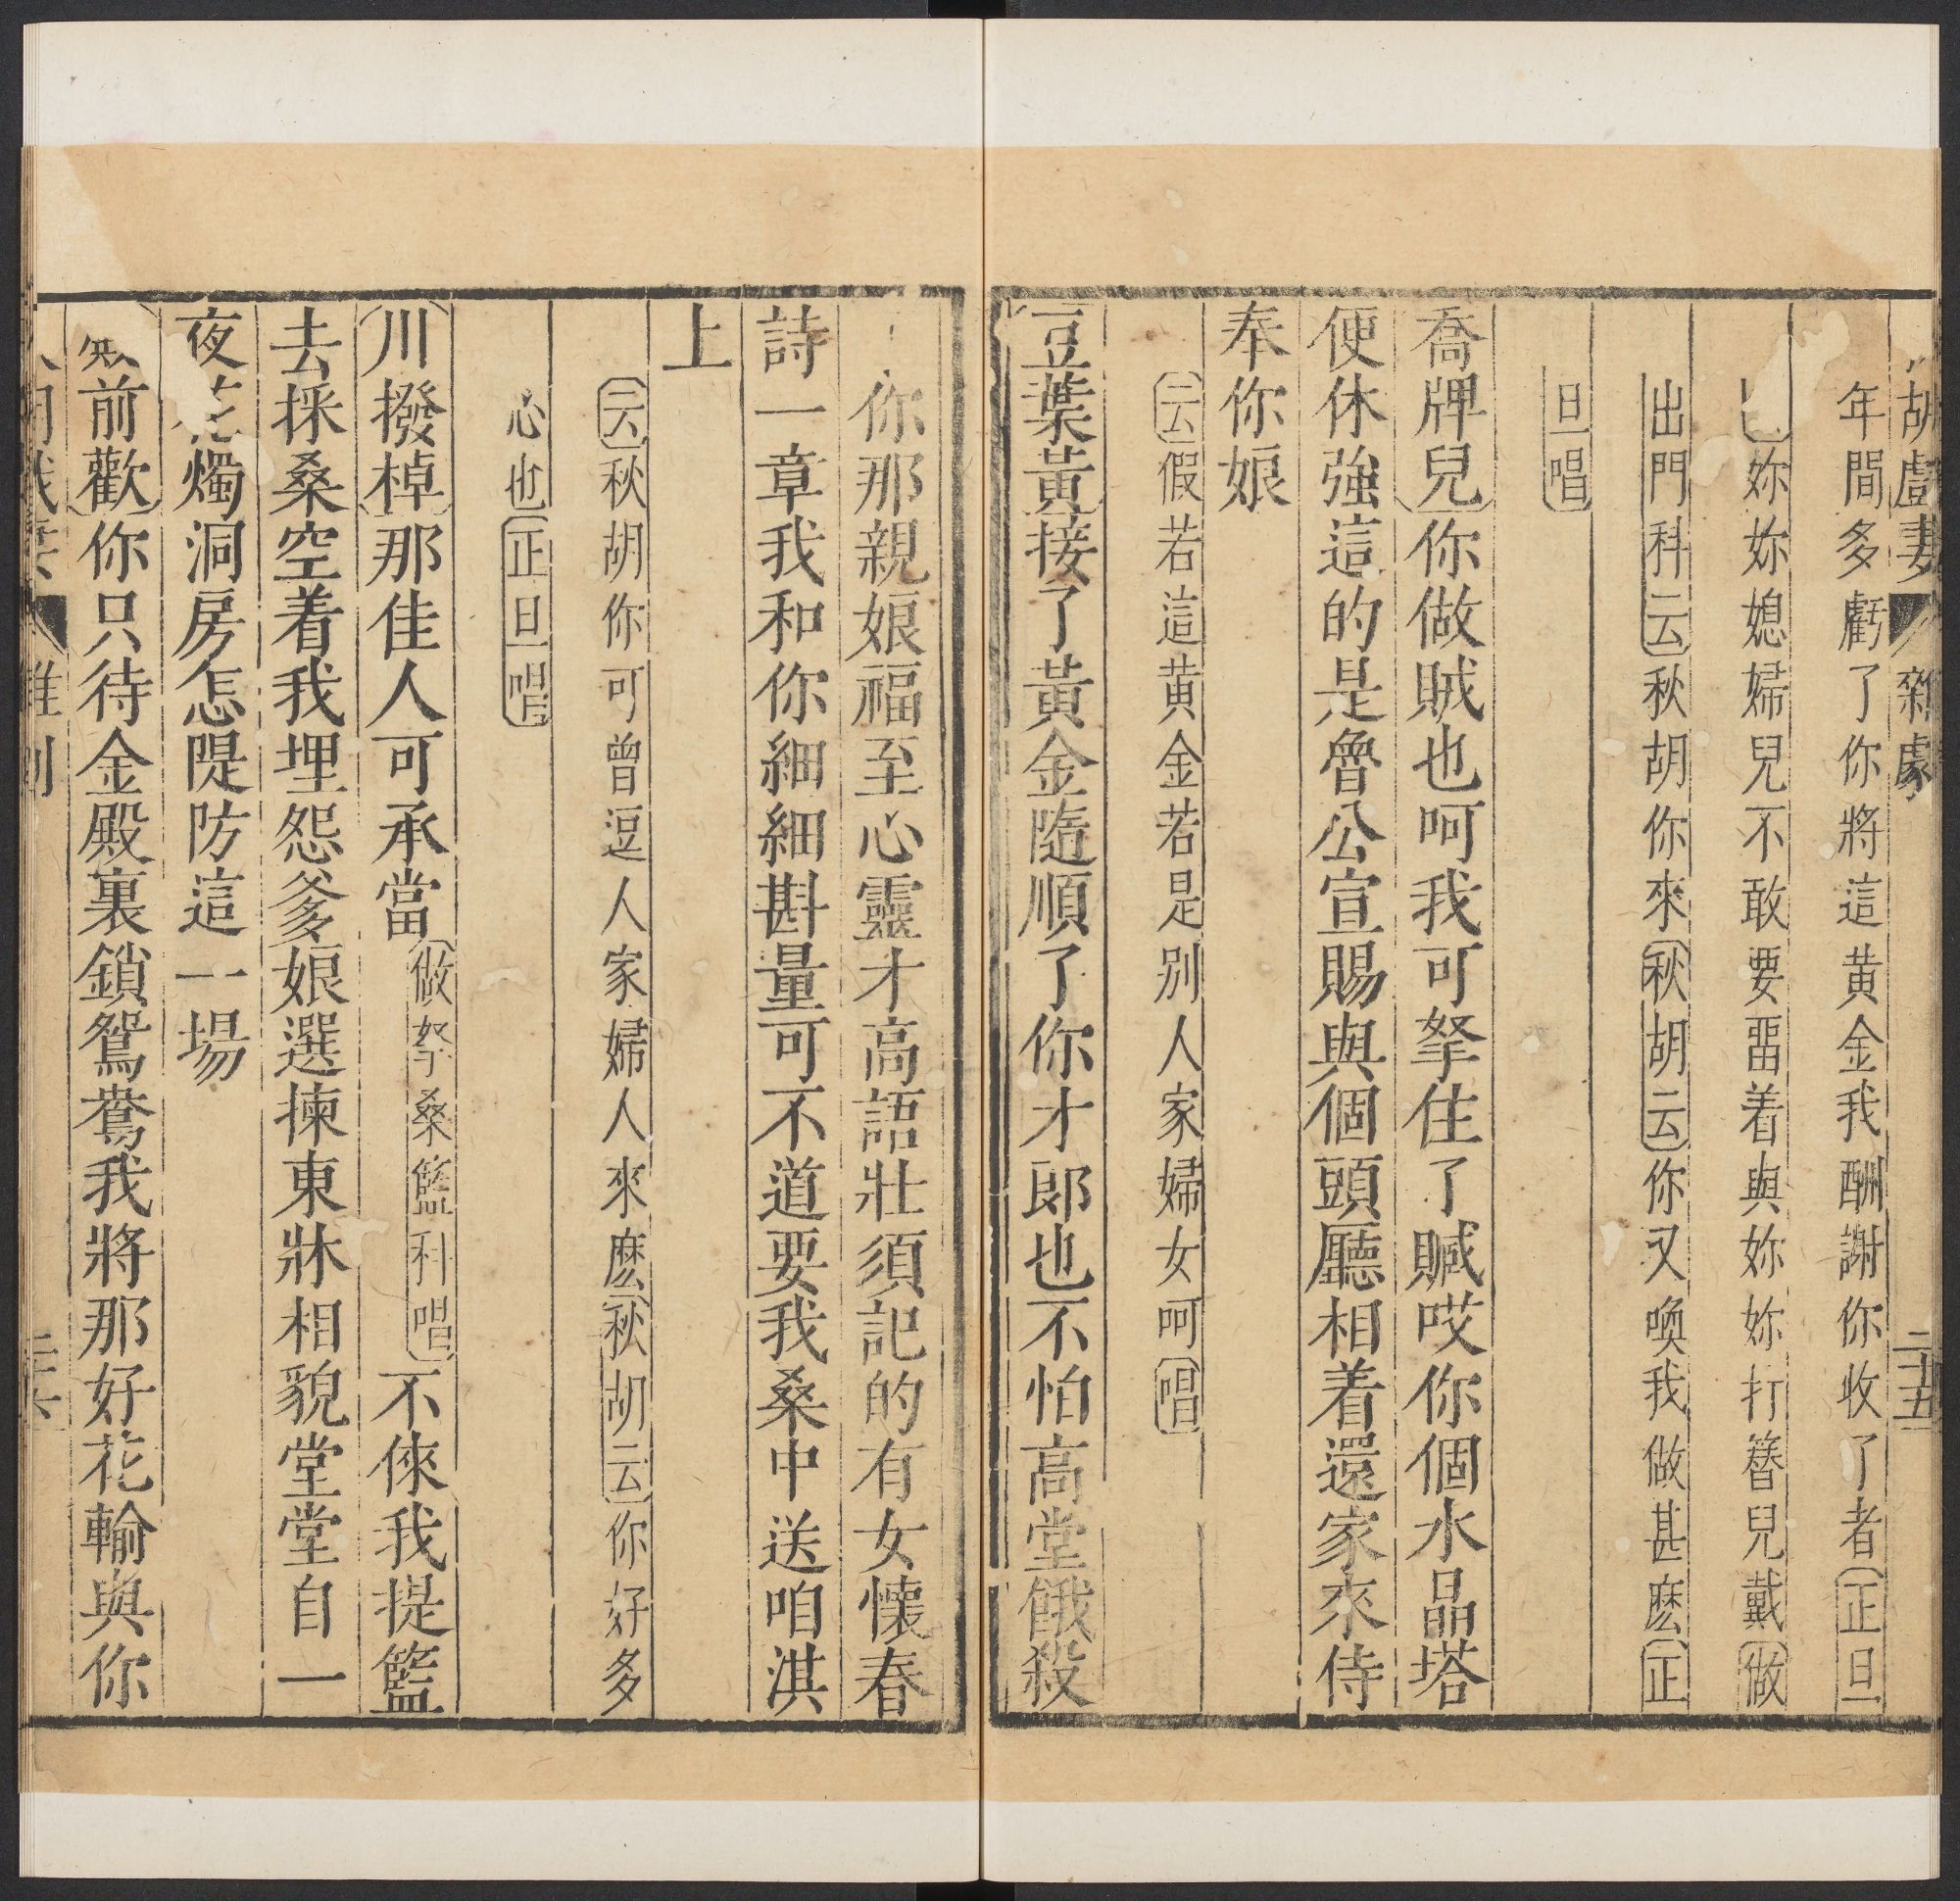 胡戲妻 雜劇 二十五
年間多虧了你將這黄金我酬謝你收了者正旦
妳妳媳婦兒不敢要畱着與妳妳打簪兒戴做
出門科云秋胡你來秋胡云你又喚我做甚麽正
旦唱
喬牌兒你做賊也呵我可拏住了贓哎你個水晶塔
便休強這的是魯公宣賜與個頭廳相着還家來侍
奉你娘
云假若這黄金若是别人家婦女呵唱
豆葉黃接了黃金隨順了你才郎也不怕高堂餓殺
你那親娘福至心靈才高語壯須記的有女懷春
詩一章我和你細細斟量可不道要我桑中送咱淇
上
云秋胡你可曾逗人家婦人來麽秋胡云你好多
心也正旦唱
川撥棹那佳人可承當做拏桑籃科唱不倈我提籃
去採桑空着我埋怨爹娘選揀東牀相貌堂堂自一
夜花燭洞房怎隄防這一場
前歡你只待金殿裏鎖鴛鴦我將那好花輸與你